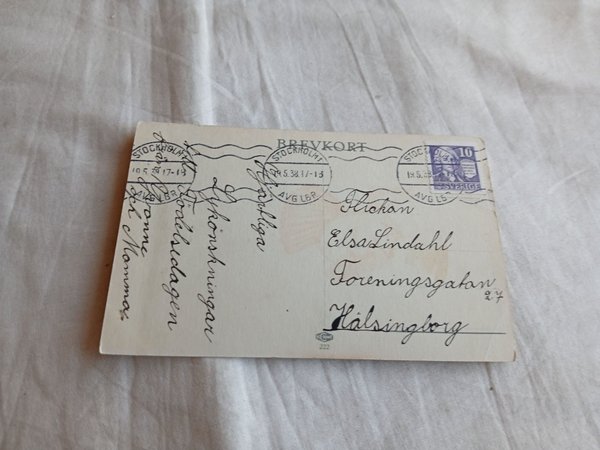 BREVKORT
STOCKHOLM
19.5.38.17-18
AVG LBR
STOCKHOLM
19.5.38
AVG LBR
STOCKHOLM
19.5.38
AVG LBR
10
SVERIGE
Hjärtliga
Lyckönskningar
Födelsedagen
Yvonne
Mamma
Flickan
Elsa Lindahl
Föreningsgatan
27
Hälsingborg
222